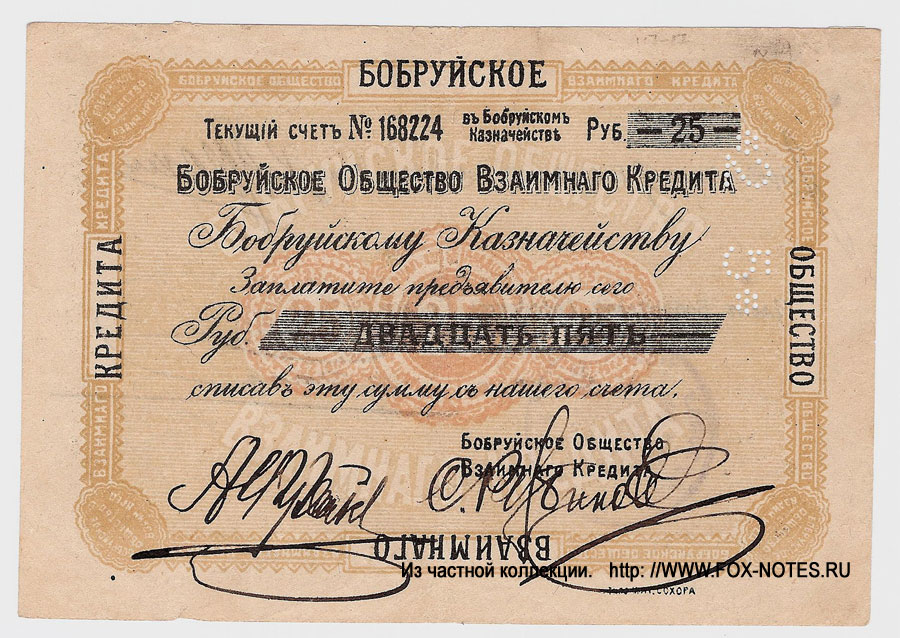 БОБРУЙСКОЕ
БОБРУЙСКОЕ ОБЩЕСТВО ВЗАИМНАГО КРЕДИТА
Текущій счетъ № 168224 въ Бобруйскомъ Казначействѣ Руб. — 25 —
Бобруйское Общество Взаимнаго Кредита
Бобруйскому Казначейству
Заплатите предъявителю сего
Руб. ДВАДЦАТЬ ПЯТЬ
списавъ эту сумму съ нашего счета.
Бобруйское Общество
Взаимнаго Кредита
КРЕДИТА
ОБЩЕСТВО
ВЗАИМНАГО
КРЕДИТА
ВЗАИМНАГО
БОБРУЙСКОЕ
ОБЩЕСТВО
Из частной коллекции. http: //WWW.FOX-NOTES.RU